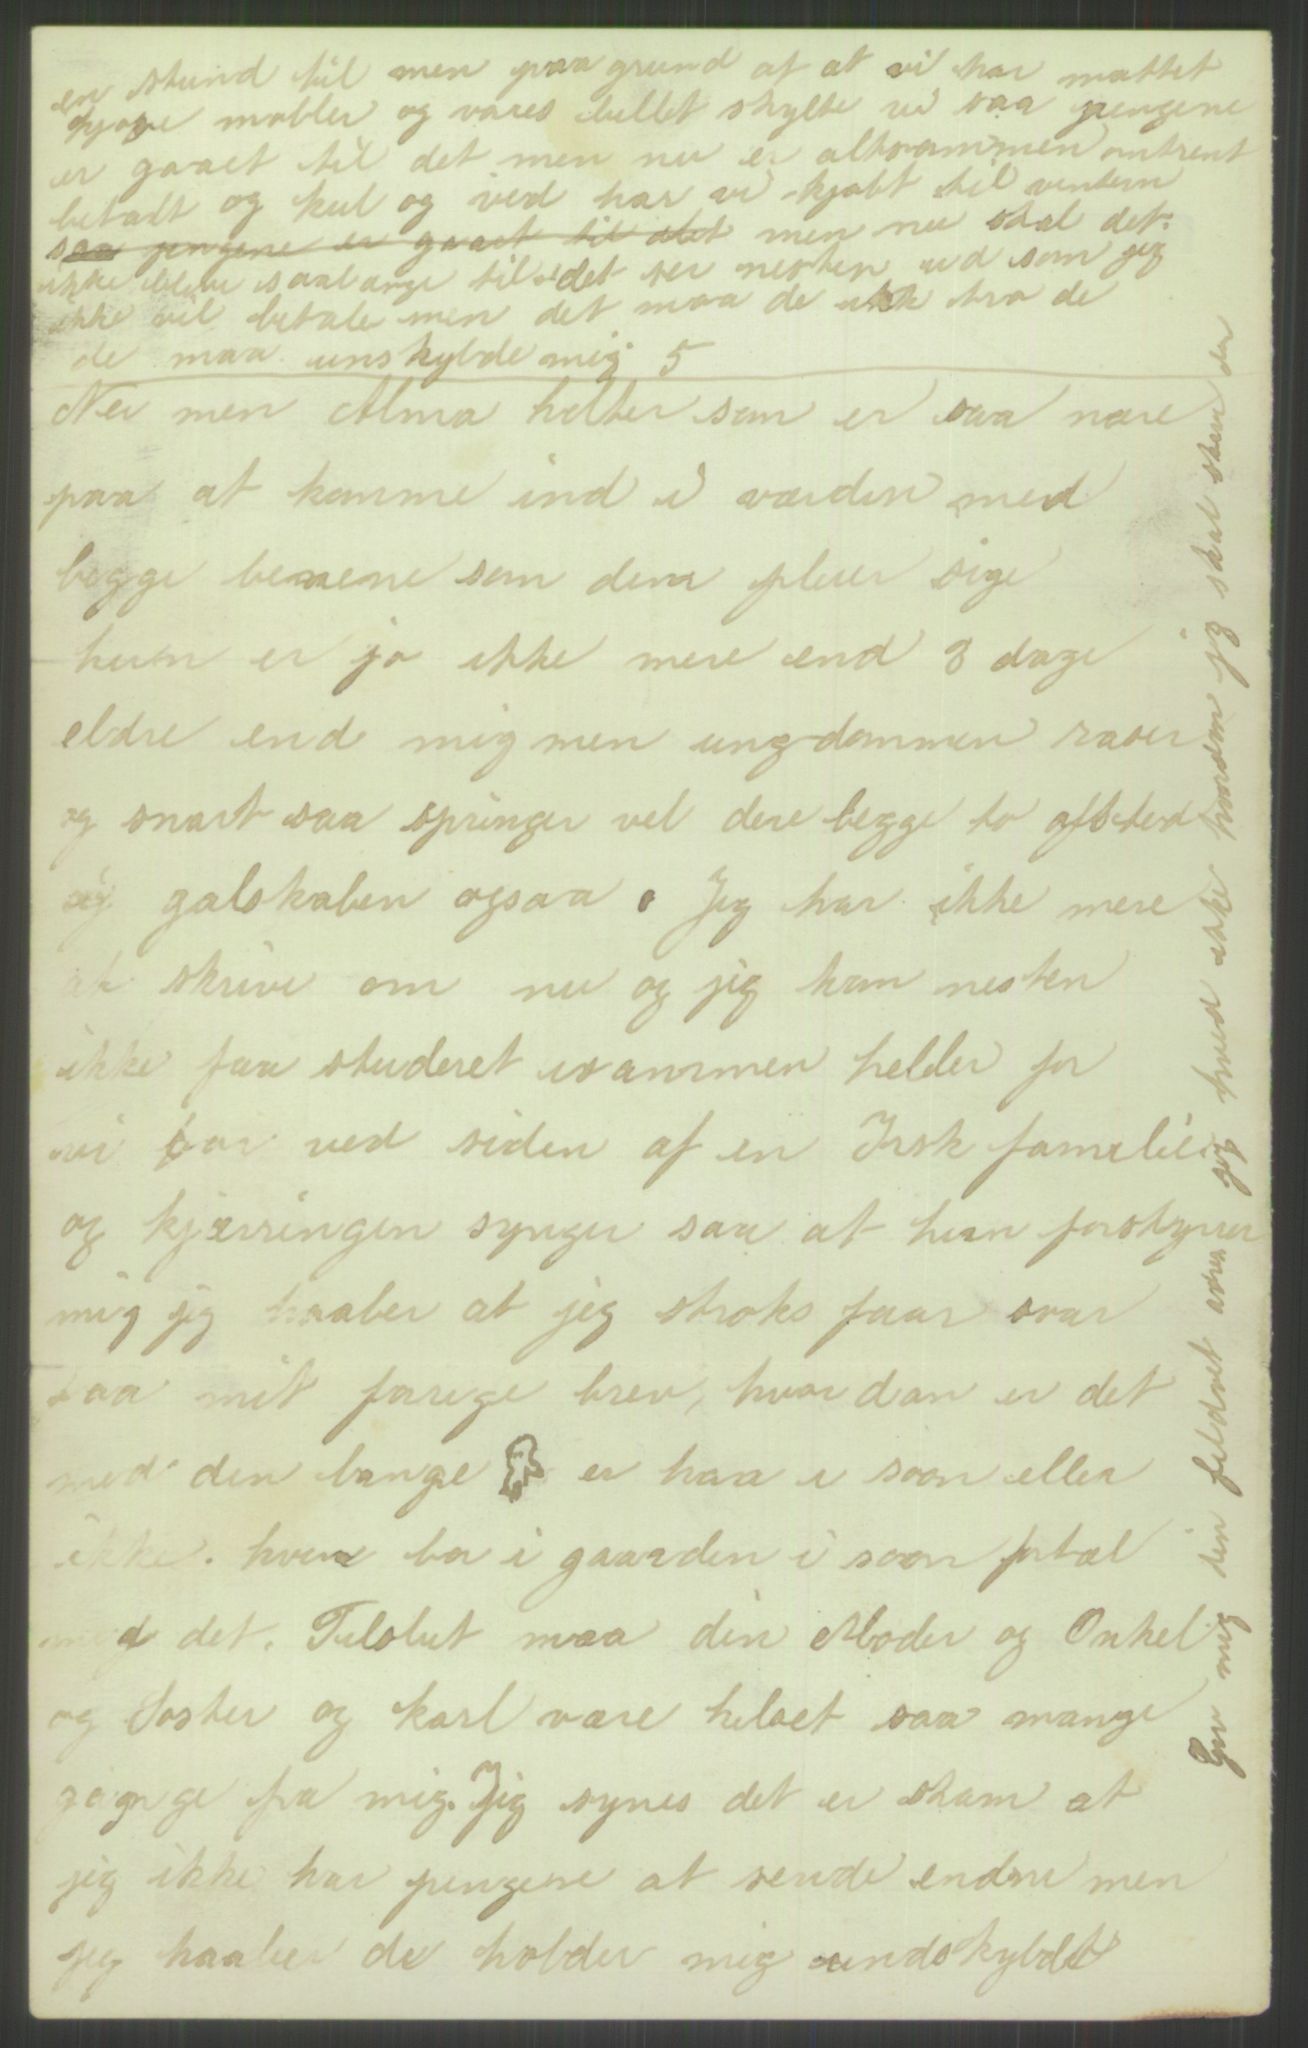 en stund til men paa grund af at vi har mattet
kjøpe møbler og vores billet skylte vi saa pengene
er gaaet til det men nu er altsammen omtrent
betalt og kul og ved har vi kjøbt til vintern
saa pengene er gaaet til det men nu skal det
ikke blive saalange til det ser nesten ud som jeg
ikke vil betale men det maa de ikk tro de
de maa unskylde mig 5
Nei men Alma holter som er saa nære
paa at komme ind i værden med
begge benene som dem pleier sige
hun er jo ikke mere end 8 dage
eldre end mig men ungdommen raser
og snart saa springer vel dere begge to afsted
og galskaben ogsaa. Jeg har ikke mere
at skrive om nu og jeg kan nesten
ikke faa studeret isammen heller for
vi bor ved siden af en Irsk familie
og kjærringen synger saa at hun forstyrer
mig jeg haaber at jeg straks faar svar
paa mit forige brev, hvordan er det
med den lange er haa i soon eller
ikke. hvem bor i gaarden i soon fortal
mig det. Tilslut maa din Moder og Onkel
og Søster og karl være hilset saa mange
gange fra mig. Jeg synes det er skam at
jeg ikke har pengene at sende endnu men
jeg haaber de holder mig undskyldt
Giv mig din fuldret adres jeg hved ikke hvorsen jeg skal skrive den